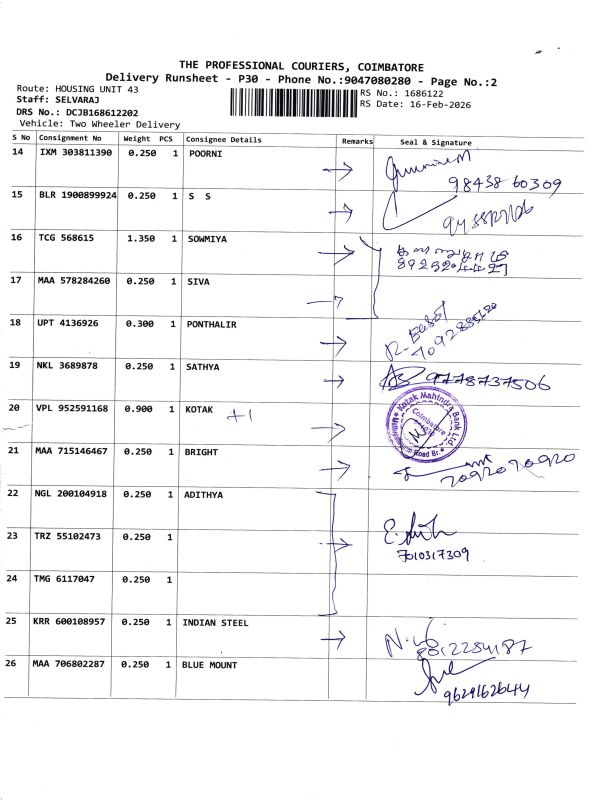 THE PROFESSIONAL COURIERS, COIMBATORE
Delivery Runsheet - P30 - Phone No.:9047080280 - Page No.:2
Route: HOUSING UNIT 43
RS No.: 1686122
Staff: SELVARAJ
RS Date: 16-Feb-2026
DRS No.: DCJB168612202
Vehicle: Two Wheeler Delivery
S No Consignment No Weight PCS Consignee Details Remarks Seal & Signature
14 IXM 303811390 0.250 1 POORNI
9843860309
15 BLR 1900899924 0.250 1 S S
16 TCG 568615 1.350 1 SOWMIYA
17 MAA 578284260 0.250 1 SIVA
18 UPT 4136926 0.300 1 PONTHALIR
19 NKL 3689878 0.250 1 SATHYA
9778737506
20 VPL 952591168 0.900 1 KOTAK +1
Kotak Mahindra Bank Ltd.
Coimbatore
Road Br.
21 MAA 715146467 0.250 1 BRIGHT
7092070920
22 NGL 200104918 0.250 1 ADITHYA
23 TRZ 55102473 0.250 1
7010317309
24 TMG 6117047 0.250 1
25 KRR 600108957 0.250 1 INDIAN STEEL
8012284187
26 MAA 706802287 0.250 1 BLUE MOUNT
9629162644